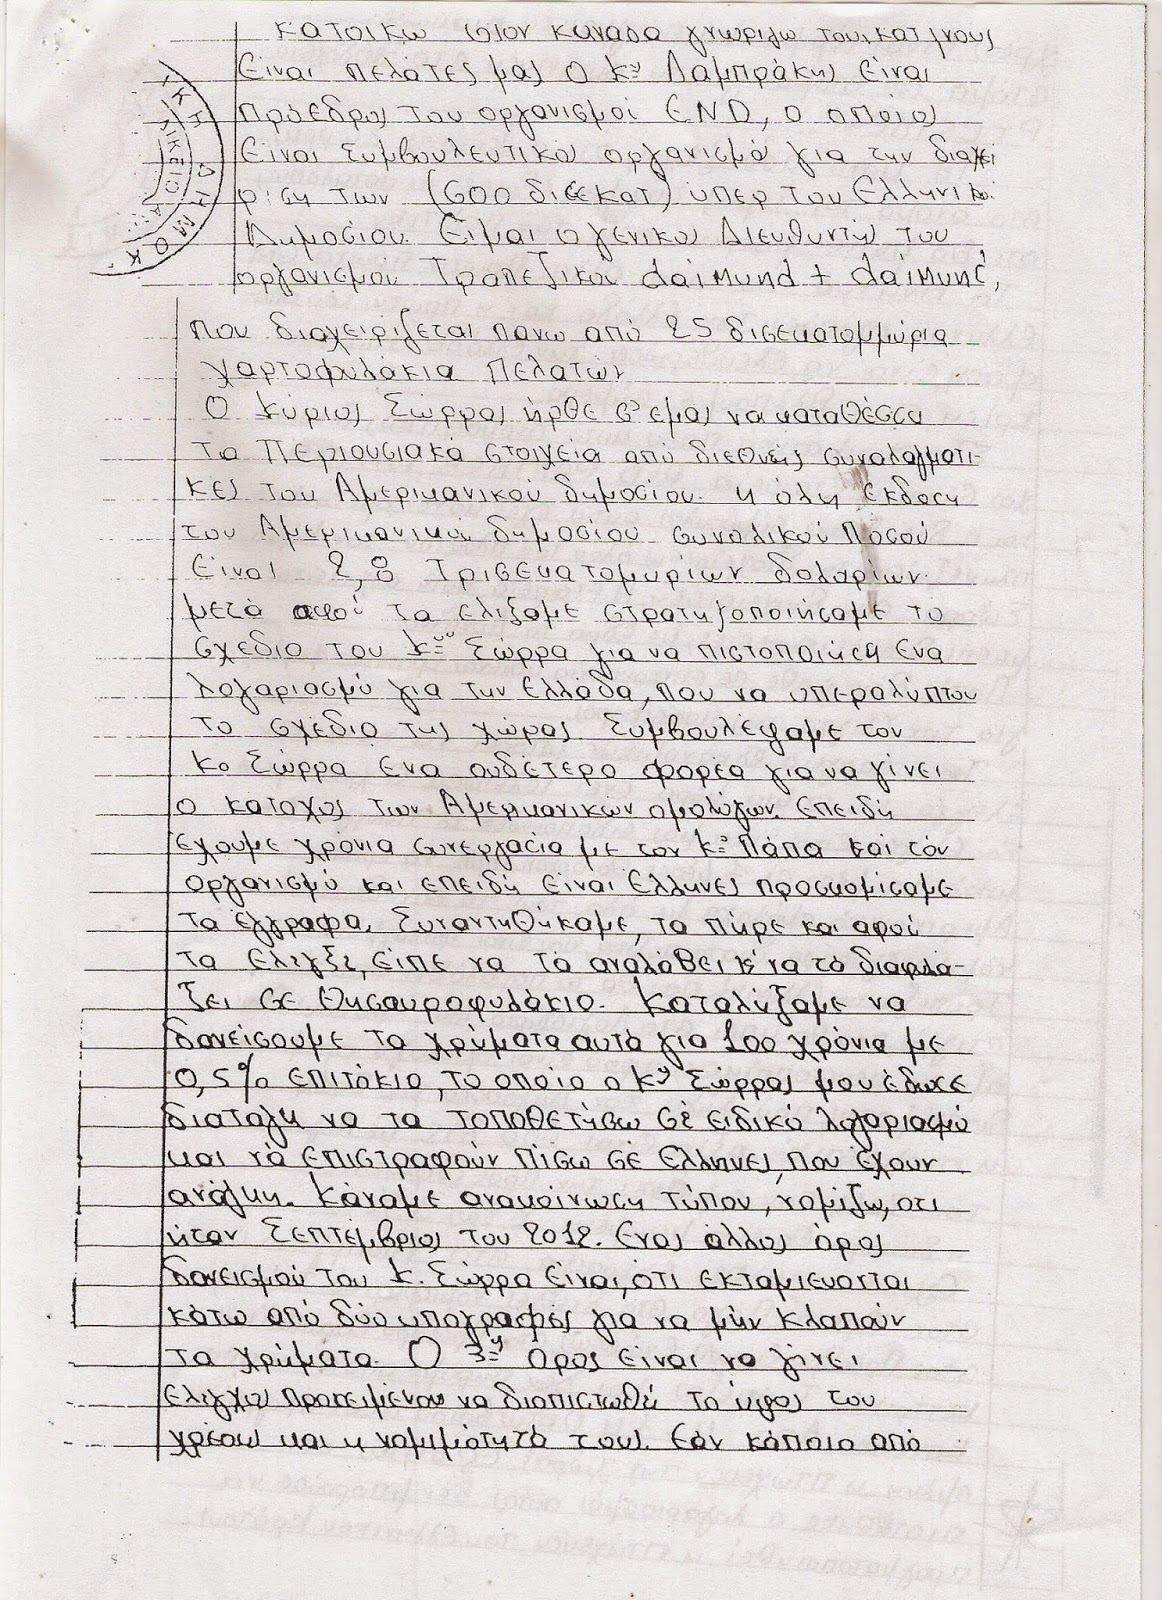 κατοικώ στον καναδά γνωρίζω τους κατ/νους
Είναι πελάτες μας ο κος Λαμπράκης είναι
πρόεδρος του οργανισμού END, ο οποίος
Είναι Συμβουλευτικός οργανισμό για την διαχεί
ριση των (600 δισεκατ) υπερ του Ελληνικού
Δημοσίου. Είμαι ο γενικός Διευθυντής του
οργανισμού Τραπεζικού daimund + daimund,
που διαχειρίζεται πανω από 25 δισεκατομμύρια
χαρτοφυλάκια πελατών
Ο Κύριος Σώρρας ήρθε σ' εμάς να καταθέσει
τα Περιουσιακά στοιχεία από διεθνείς συναλαγματι-
κες του Αμερικανικού δημοσίου. η όλη έκδοση
του Αμερικανικού δημοσίου συνολικού Ποσού
Είναι 2,8 Τρισεκατομυρίων δολαρίων
μετά αφού τα ελέξαμε στρατηγοποιήσαμε το
σχέδιο του κου Σώρρα για να πιστοποιήσει ένα
λογαριασμό για την Ελλάδα, που να υπερκαλύπτει
το σχέδιο της χώρας Συμβουλέψαμε τον
κο Σώρρα ένα ουδέτερο φορέα για να γίνει
ο κάτοχος των Αμερικανικών ομολόγων. Επειδή
έχουμε χρόνια συνεργασία με τον κο Πάπα και τόν
οργανισμό και επειδή είναι Έλληνες προσκομίσαμε
τα έγγραφα. Συναντηθήκαμε, τα πήρε και αφού
τα έλεγξε, είπε να τα αναλάβει κ' να τα διαφυλά-
ξει σε θησαυροφυλάκιο. Καταλήξαμε να
δανείσουμε τα χρήματα αυτά για 100 χρόνια με
0,5% επιτόκιο, το οποίο ο κος Σώρρας μου έδωσε
διαταγή να τα τοποθετήσω σέ ειδικό λογαριασμό
και να επιστραφούν πίσω σέ Έλληνες, που έχουν
ανάγκη. Κάναμε ανακοίνωση τύπου, νομίζω, οτι
ήταν Σεπτέμβριος του 2012. Ένας άλλος όρος
δανεισμού του κ. Σώρρα είναι, ότι εκταμιεύονται
κάτω από δύο υπογραφές για να μήν κλαπούν
τα χρήματα. Ο 3ος όρος είναι να γίνει
έλεγχος προκειμένου να διαπιστωθεί το ύψος του
χρέους και η νομιμότητά τους. Εάν κάποιο από